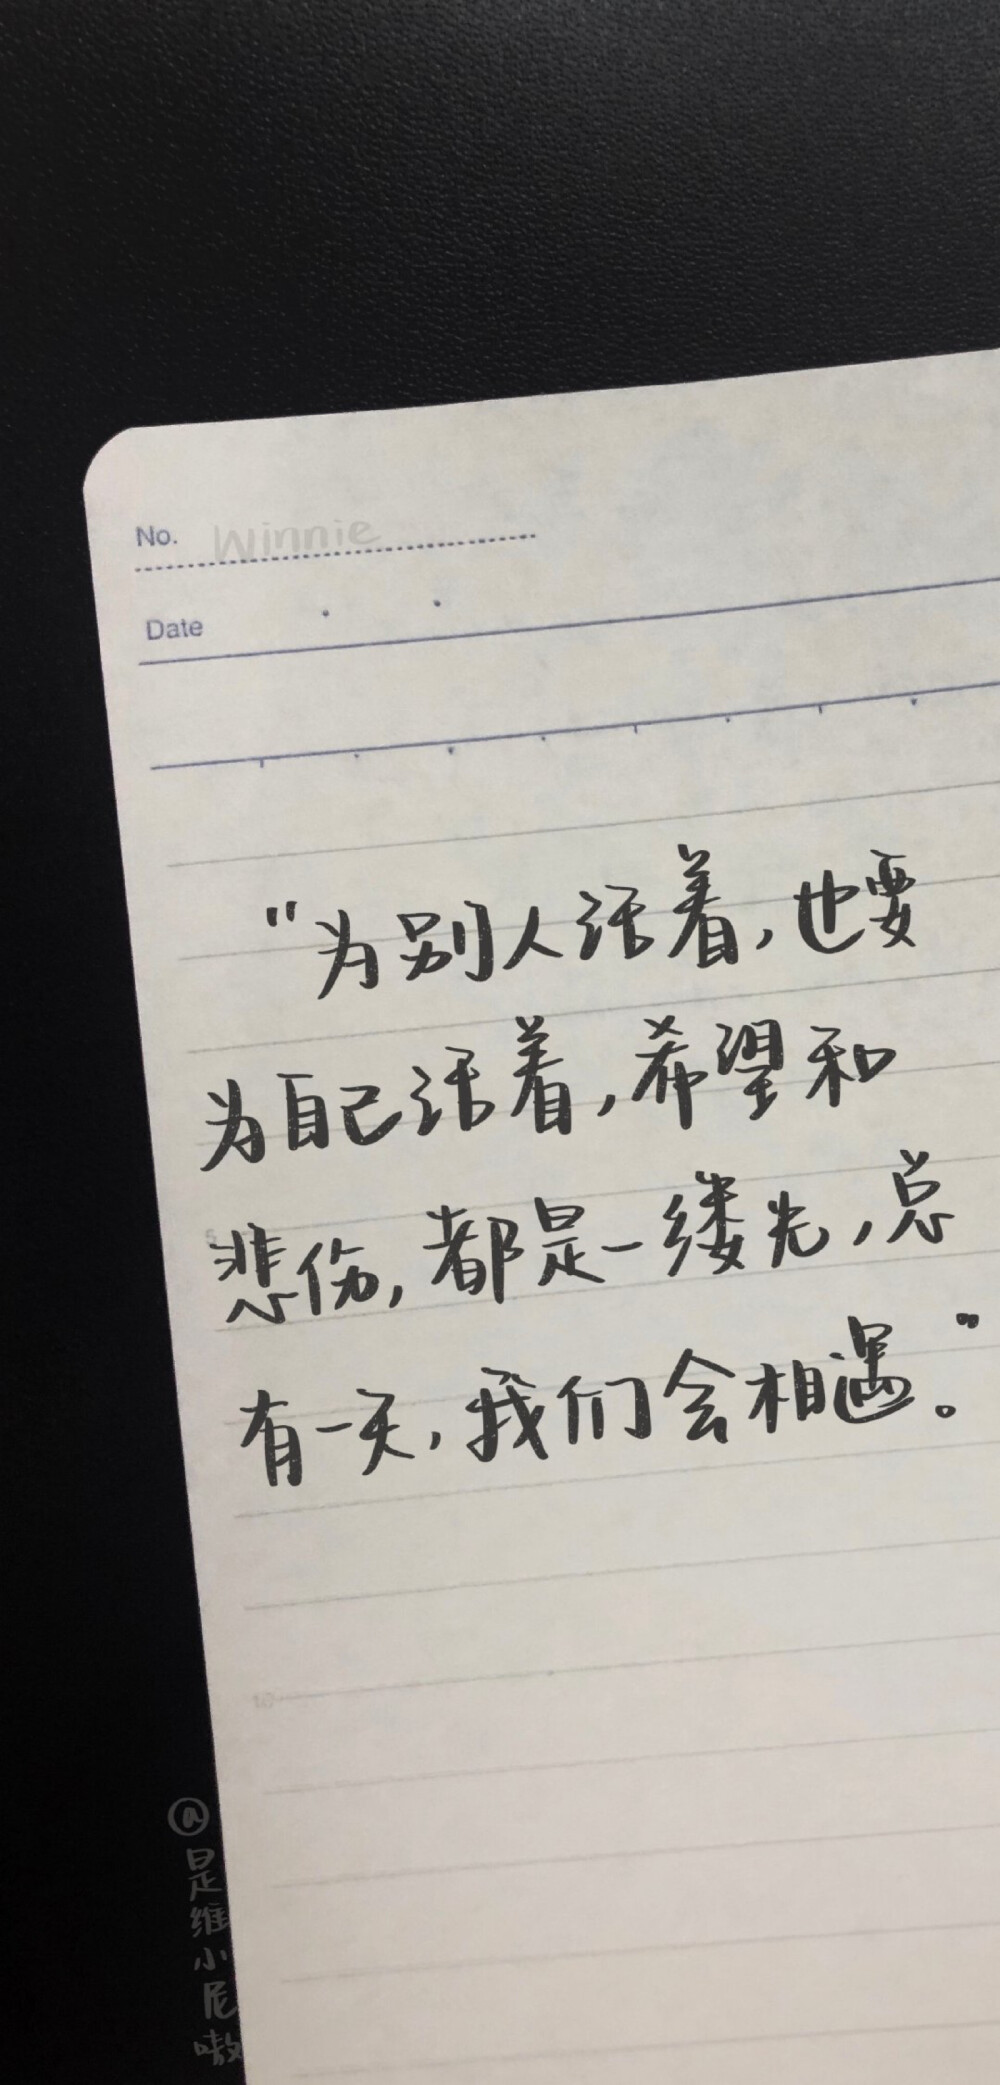 No. Winnie
Date
"为别人活着,也要
为自己活着,希望和
悲伤,都是一缕光,总
有一天,我们会相遇。"
5
10
@是维小尼嗷